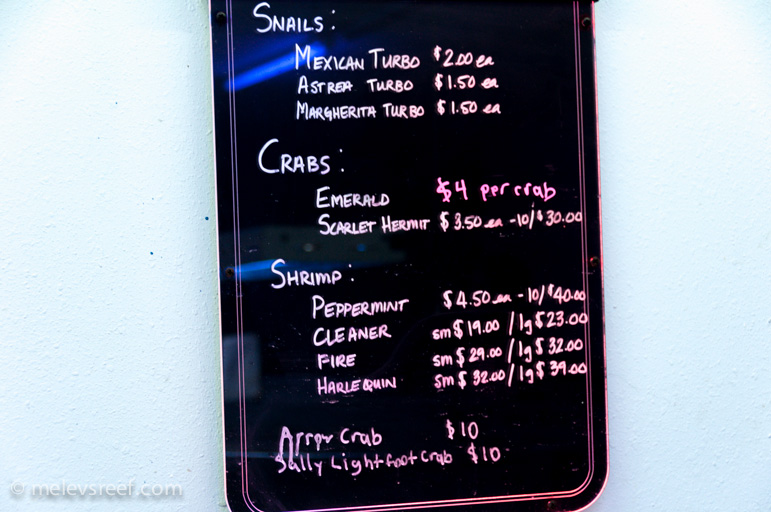 SNAILS:
MEXICAN TURBO $2.00 ea
ASTREA TURBO $1.50 ea
MARGHERITA TURBO $1.50 ea
CRABS:
EMERALD $4 per crab
SCARLET HERMIT $3.50 ea - 10/$30.00
SHRIMP:
PEPPERMINT $4.50 ea - 10/$40.00
CLEANER sm $19.00 / lg $23.00
FIRE sm $29.00 / lg $32.00
HARLEQUIN sm $32.00 / lg $39.00
Arrow Crab $10
Sally Lightfoot Crab $10
© melevsreef.com